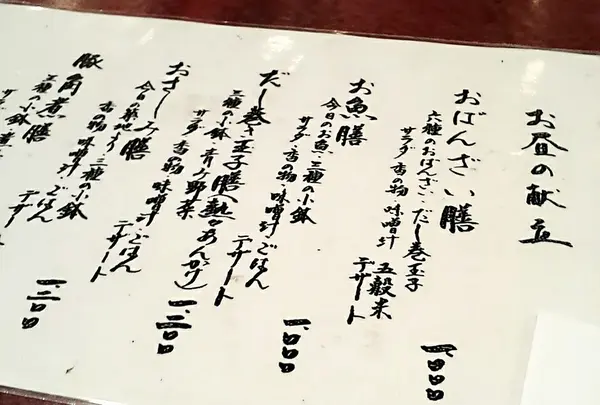 お昼の献立
おばんざい膳
六種のおばんざい・だし巻玉子
サラダ・香の物・味噌汁 五穀米
デザート
一、〇〇〇
お魚膳
今日のお魚・三種の小鉢
サラダ・香の物・味噌汁・ごはん
デザート
一、〇〇〇
だし巻き玉子膳(熱々あんかけ)
三種の小鉢・青み野菜
サラダ・香の物・味噌汁・ごはん
デザート
一、三〇〇
おさしみ膳
今日の築地より 三種の小鉢
香の物・味噌汁・ごはん
デザート
一、三〇〇
豚角煮膳
三種の小鉢
味噌汁 ごはん
サラダ
デザ